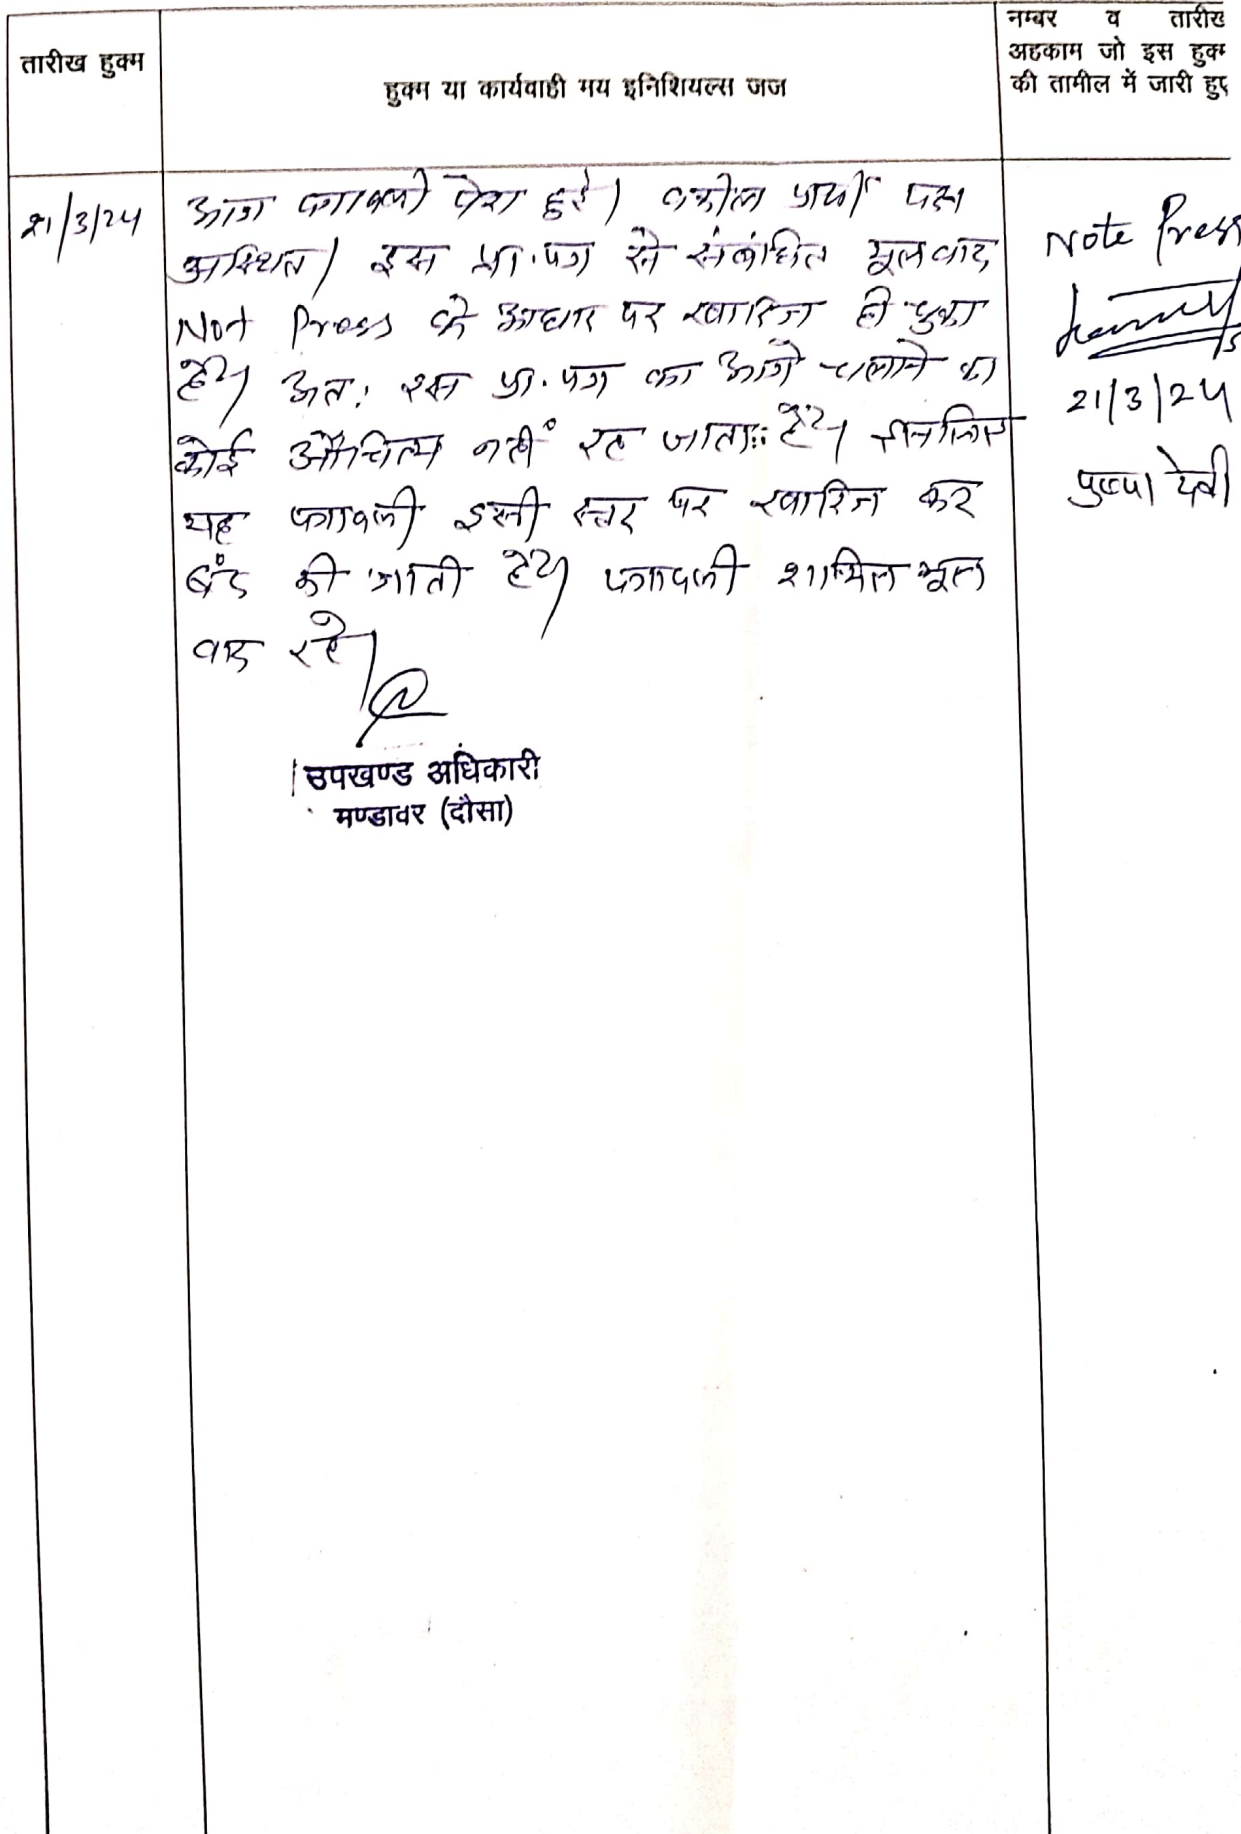 तारीख हुक्म
हुक्म या कार्यवाही मय इनिशियल्स जज
नम्बर व तारीख
अहकाम जो इस हुक्म
की तामील में जारी हुए
21/3/24
आज पत्रावली पेश हुई। वकील प्रार्थी पक्ष
उपस्थित। इस प्रा.पत्र से संबंधित मूलवाद
Not Press के आधार पर खारिज हो चुका
है। अतः इस प्रा.पत्र का आगे चलाने का
कोई औचित्य नहीं रह जाता है।
यह पत्रावली इसी स्तर पर खारिज कर
बंद की जाती है। पत्रावली शामिल मूल
वाद रहे।
उपखण्ड अधिकारी
मण्डावर (दौसा)
Note Press
21/3/24
पुष्पा देवी